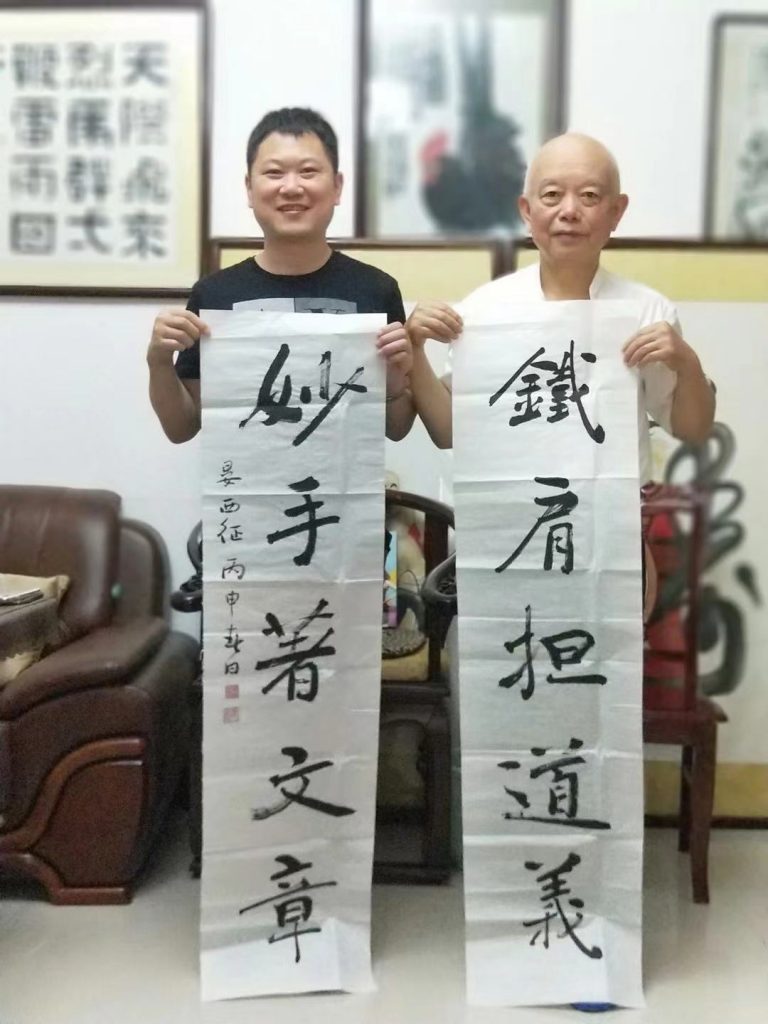 鐵肩担道義
妙手著文章
晏西征 丙申春日